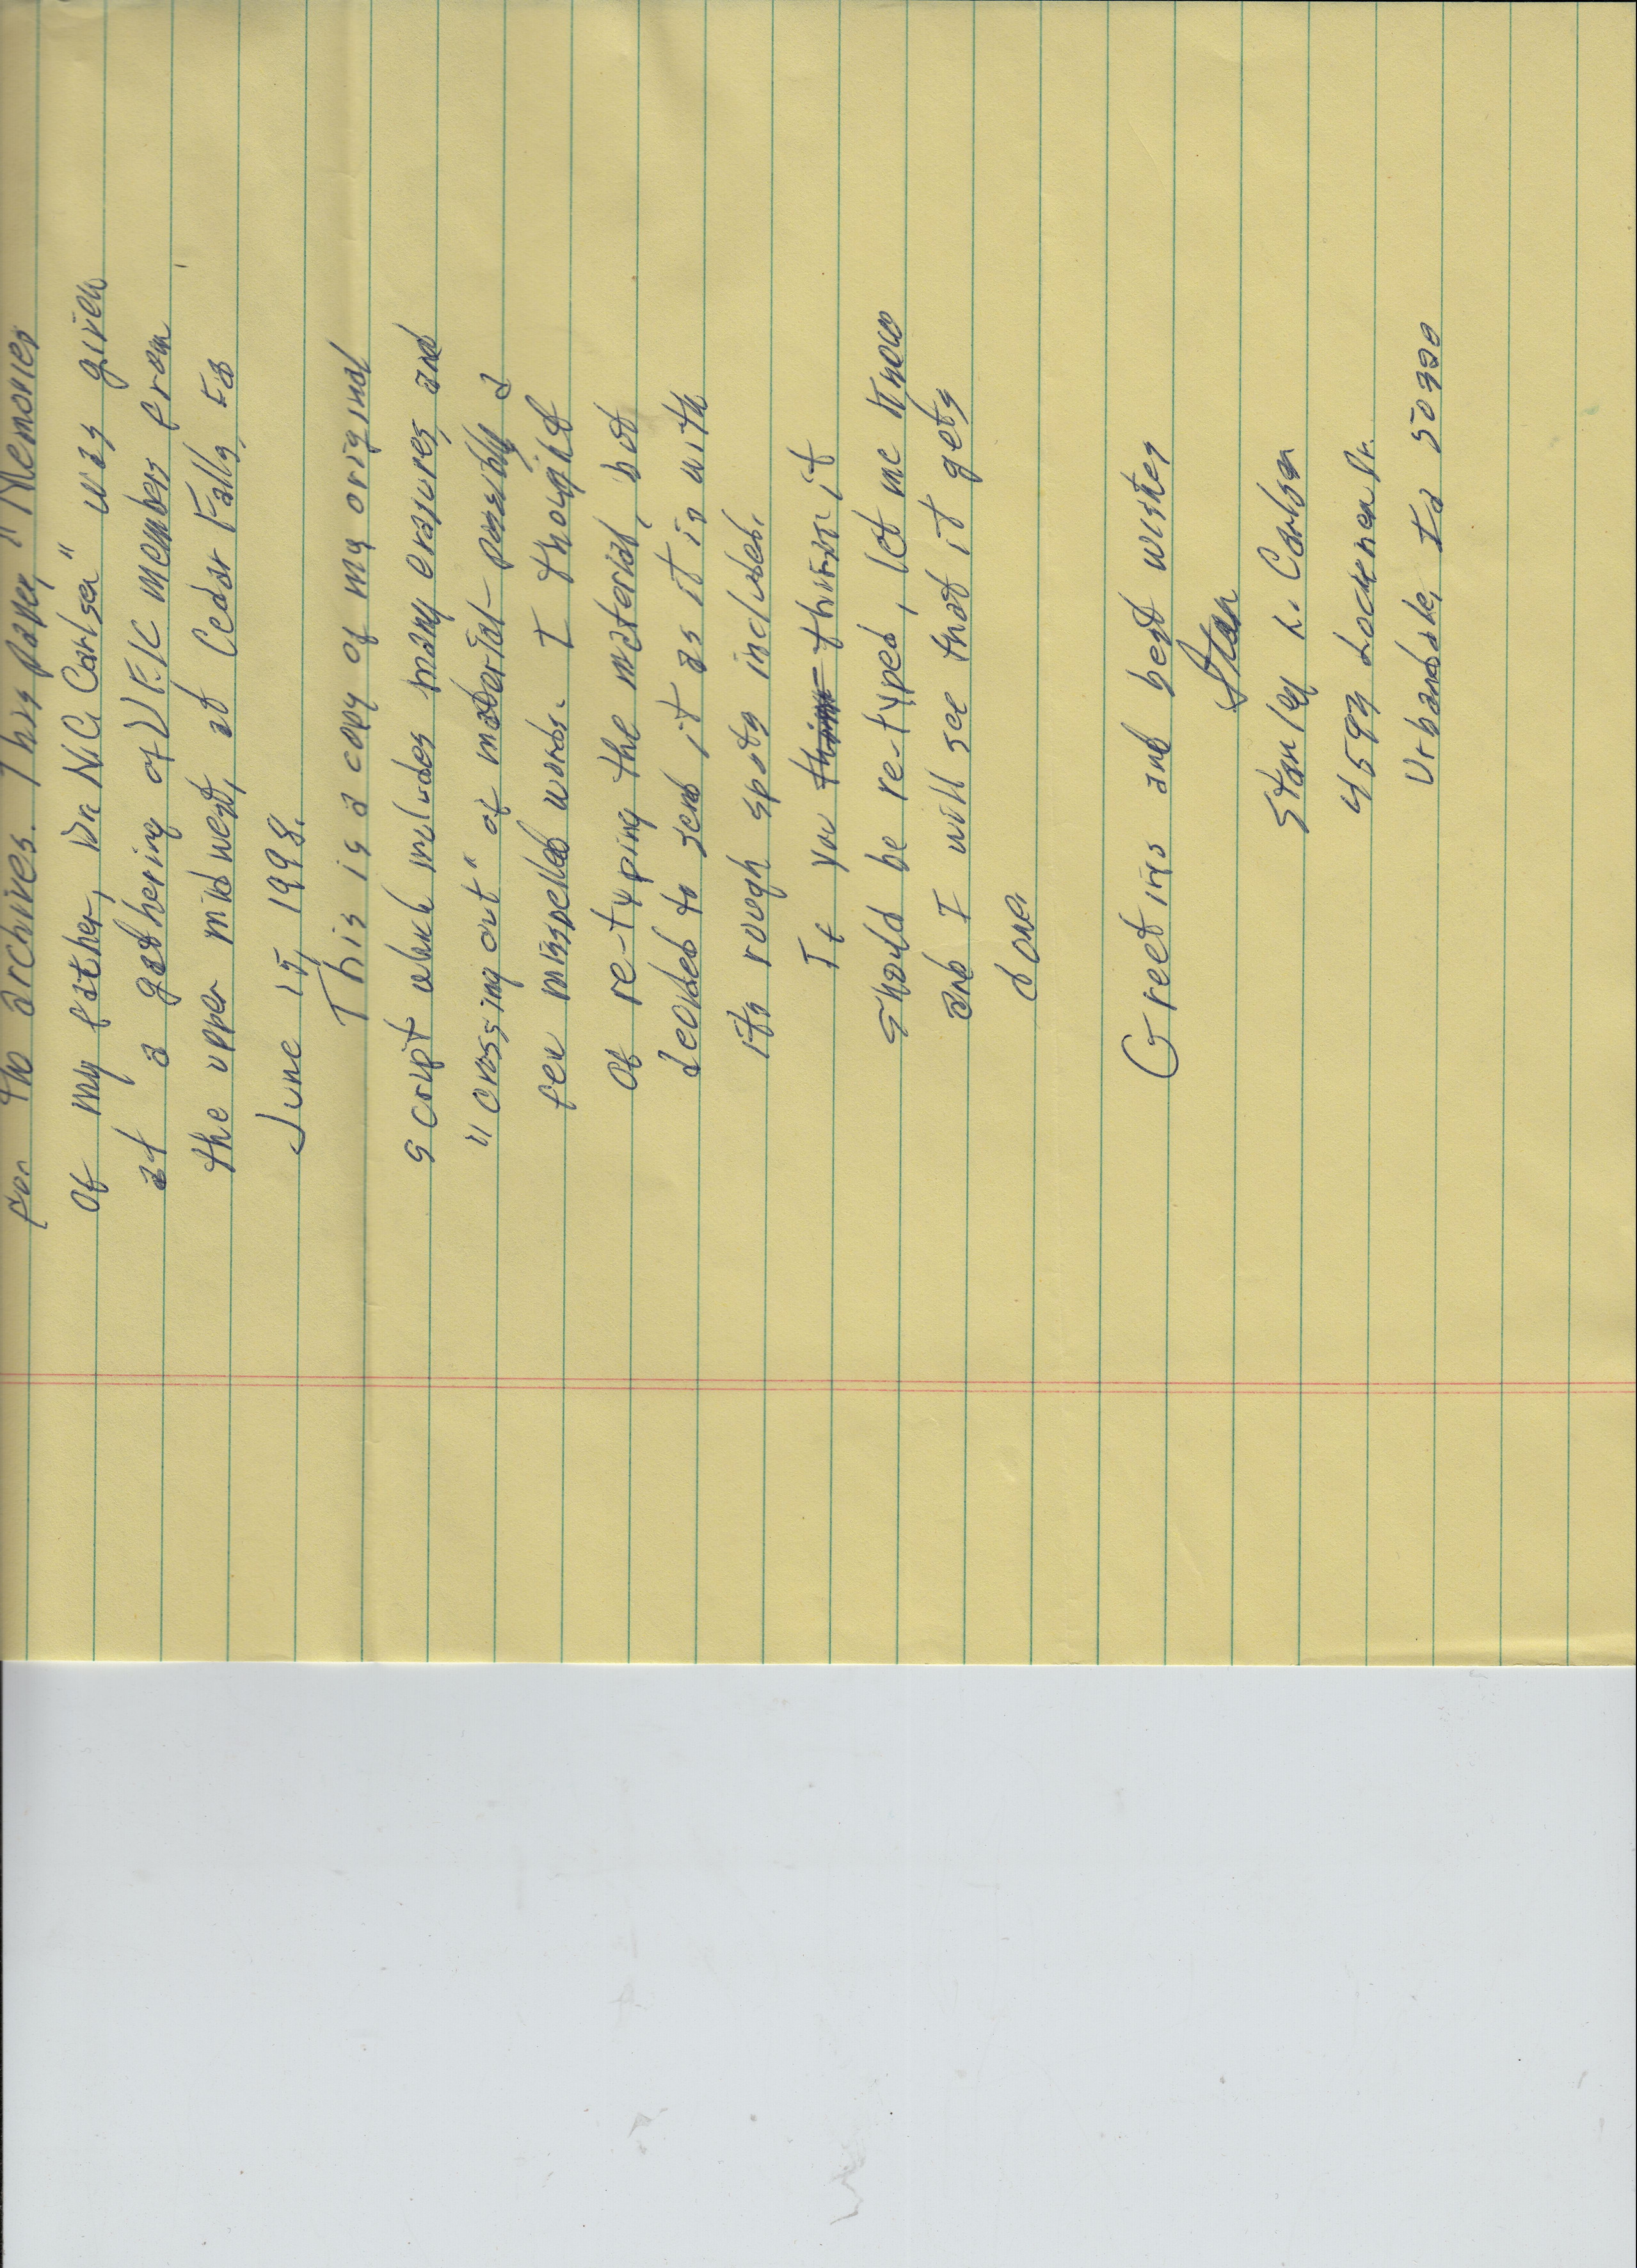 for the archives. This paper, "Memories
of my father, Dr. N.C. Carlsen" was given
at a gathering of DELC members from
the upper midwest, at Cedar Falls, Ia
June 15, 1998.
This is a copy of my original
script which includes many erasures and
"crossing out" of material – possibly a
few misspelled words. I thought
of re-typing the material, but
decided to send it as it is with
its rough spots included.
If you think it
should be re-typed, let me know
and I will see that it gets
done.
Greetings and best wishes
Stan
Stanley L. Carlsen
4593 Lockner Dr.
Urbandale, Ia 50320